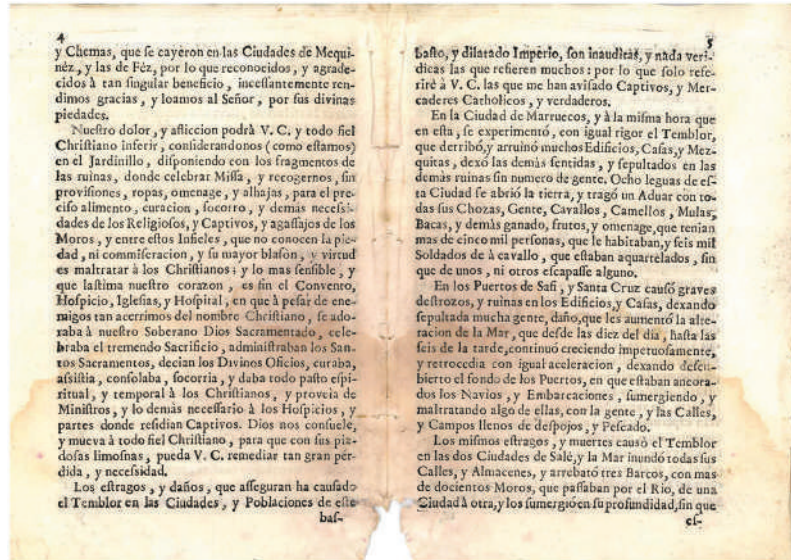 4
y Chemas, que ſe cayeron en las Ciudades de Mequi-
néz, y las de Féz, por lo que reconocidos, y agrade-
cidos à tan ſingular beneficio, inceſſantemente ren-
dimos gracias, y loamos al Señor, por ſus divinas
piedades.
Nueſtro dolor, y afliccion podrà V. C. y todo fiel
Chriſtiano inferir, conſiderandonos (como eſtamos)
en el Jardinillo, diſponiendo con los fragmentos de
las ruinas, donde celebrar Miſſa, y recogernos, ſin
proviſiones, ropas, omenage, y alhajas, para el pre-
ciſo alimento, curacion, ſocorro, y demàs neceſsi-
dades de los Religioſos, y Captivos, y agaſſajos de los
Moros, y entre eſtos Infieles, que no conocen la pie-
dad, ni commiſeracion, y ſu mayor blaſon, y virtud
es maltratar à los Chriſtianos; y lo mas ſenſible, y
que laſtima nueſtro corazon, es ſin el Convento,
Hoſpicio, Igleſias, y Hoſpital, en que à peſar de ene-
migos tan acerrimos del nombre Chriſtiano, ſe ado-
raba à nueſtro Soberano Dios Sacramentado, cele-
braba el tremendo Sacrificio, adminiſtraban los San-
tos Sacramentos, decian los Divinos Oficios, curaba,
aſsiſtia, conſolaba, ſocorria, y daba todo paſto eſpi-
ritual, y temporal à los Chriſtianos, y proveìa de
Miniſtros, y lo demàs neceſſario à los Hoſpicios, y
partes donde reſidian Captivos. Dios nos conſuele,
y mueva à todo fiel Chriſtiano, para que con ſus pia-
doſas limoſnas, pueda V. C. remediar tan gran pèr-
dida, y neceſsidad.
Los eſtragos, y daños, que aſſeguran ha cauſado
el Temblor en las Ciudades, y Poblaciones de eſte
baſ-
5
baſto, y dilatado Imperio, ſon inauditas, y nada veri-
dicas las que refieren muchos: por lo que ſolo refe-
rirè à V. C. las que me han aviſado Captivos, y Mer-
caderes Catholicos, y verdaderos.
En la Ciudad de Marruecos, y à la miſma hora que
en eſta, ſe experimentò, con igual rigor el Temblor,
que derribò, y arruinò muchos Edificios, Caſas, y Mez-
quitas, dexò las demàs ſentidas, y ſepultados en las
demàs ruinas ſin numero de gente. Ocho leguas de eſ-
ta Ciudad ſe abriò la tierra, y tragò un Aduar con to-
das ſus Chozas, Gente, Cavallos, Camellos, Mulas,
Bacas, y demàs ganado, frutos, y omenage, que tenian
mas de cinco mil perſonas, que le habitaban, y ſeis mil
Soldados de à cavallo, que eſtaban aquartelados, ſin
que de unos, ni otros eſcapaſſe alguno.
En los Puertos de Safi, y Santa Cruz cauſò graves
deſtrozos, y ruinas en los Edificios, y Caſas, dexando
ſepultada mucha gente, daño, que les aumentò la alte-
racion de la Mar, que deſde las diez del dia, haſta las
ſeis de la tarde, continuò creciendo impetuoſamente,
y retrocedia con igual aceleracion, dexando deſcu-
bierto el fondo de los Puertos, en que eſtaban ancora-
dos los Navios, y Embarcaciones, ſumergiendo, y
maltratando algo de ellas, con la gente, y las Calles,
y Campos llenos de deſpojos, y Peſcado.
Los miſmos eſtragos, y muertes cauſò el Temblor
en las dos Ciudades de Salé, y la Mar inundò todas ſus
Calles, y Almacenes, y arrebatò tres Barcos, con mas
de docientos Moros, que paſſaban por el Rio, de una
Ciudad à otra, y los ſumergiò en ſu profundidad, ſin que
eſ-